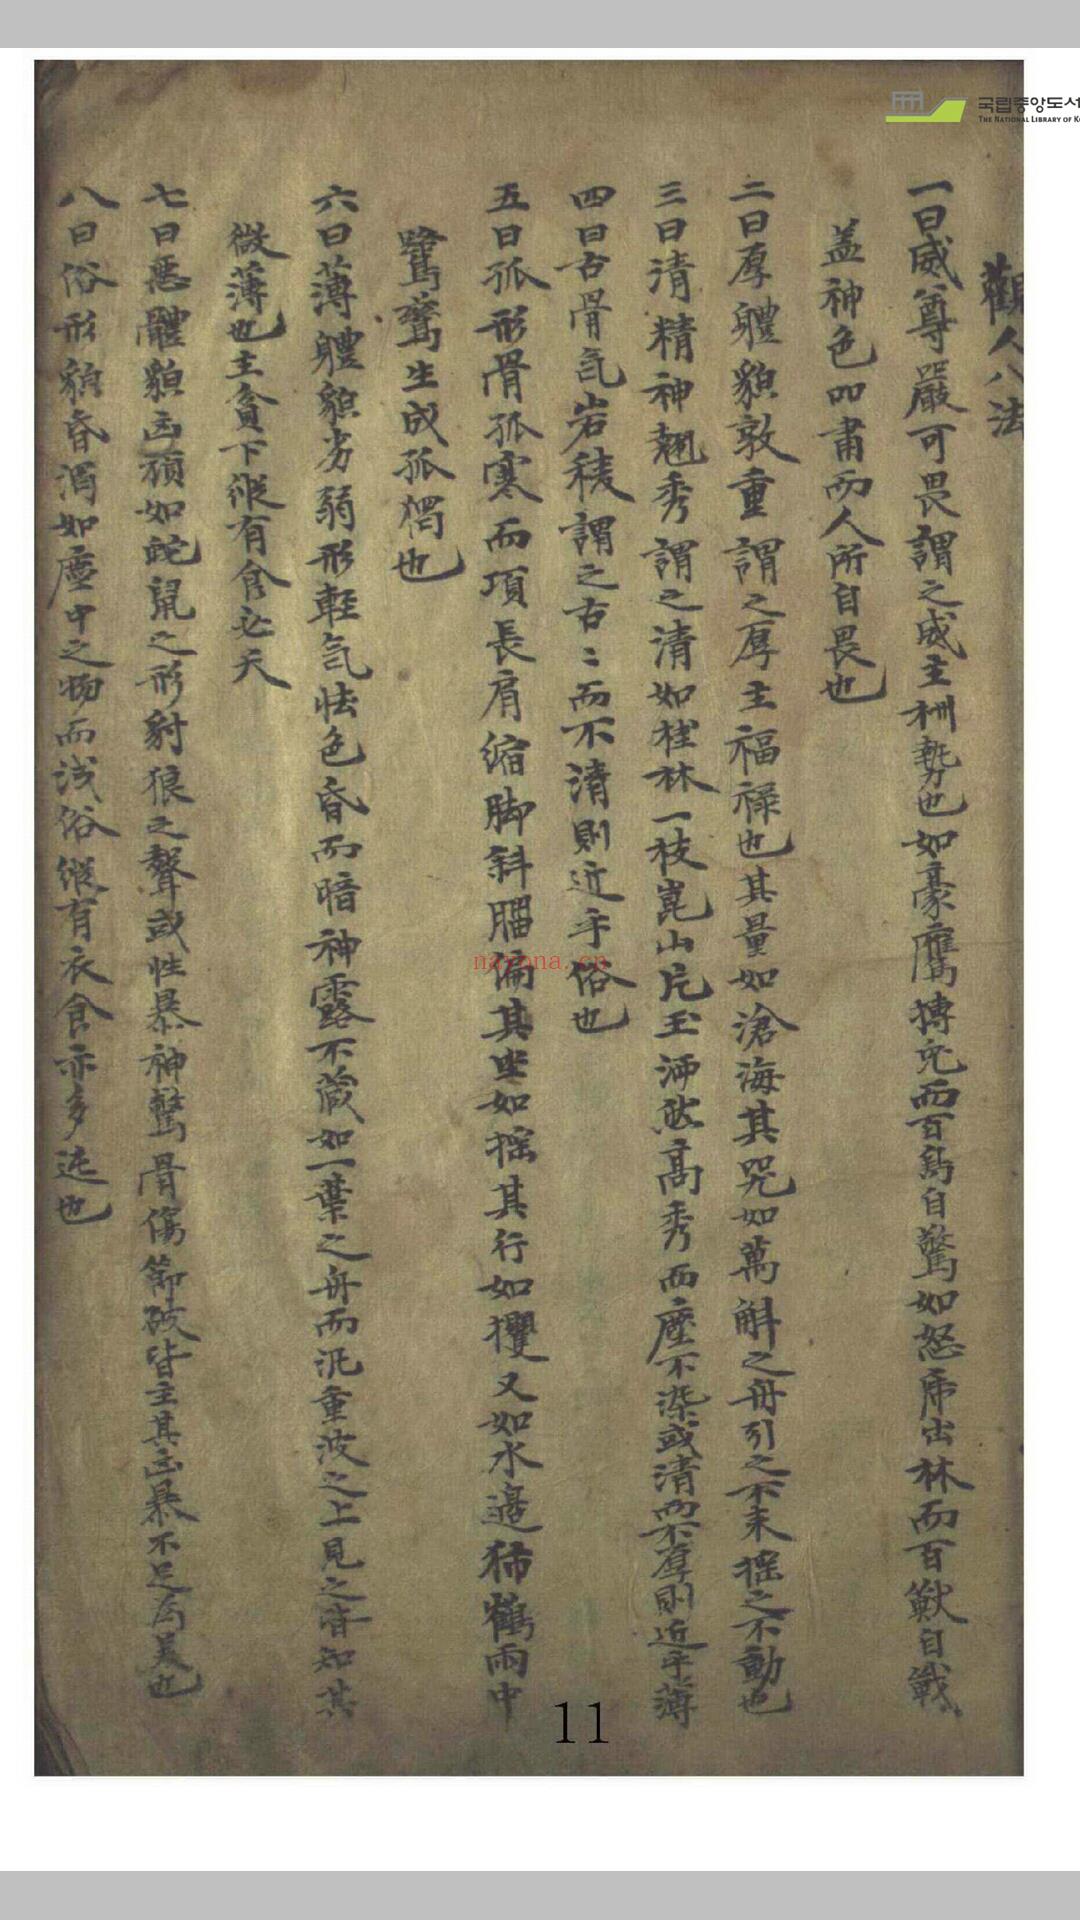 국립중앙도서
THE NATIONAL LIBRARY OF K
觀人八法
一曰威尊嚴可畏謂之威主權勢也如豪鷹搏兔而百鳥自驚如怒虎出林而百獸自戰
盖神色嚴肅而人所自畏也
二曰厚體貌敦重謂之厚主福祿也其量如滄海其咒如萬斛之舟引之不来摇之不動也
三曰清精神翘秀謂之清如桂林一枝崑山片玉洒然高秀而塵不染或清而不厚則近乎薄
四曰古骨氣岩稜謂之古〻而不清則近乎俗也
五曰孤形骨孤寒而項長肩縮脚斜腦偏其坐如摇其行如攫又如水邊獨鶴雨中
鷺鷥生成孤獨也
六曰薄體貌劣弱形輕氣怯色昏而暗神露不藏如一葉之舟而汎重波之上見之皆知其
微薄也主貧下縱有食必夭
七曰惡體貌凶頑如蛇鼠之形豺狼之聲或性暴神驚骨傷節破皆主其凶暴不足為美也
八曰俗形貌昏濁如塵中之物而浅俗縱有衣食亦多迍也
nayona.cn
11